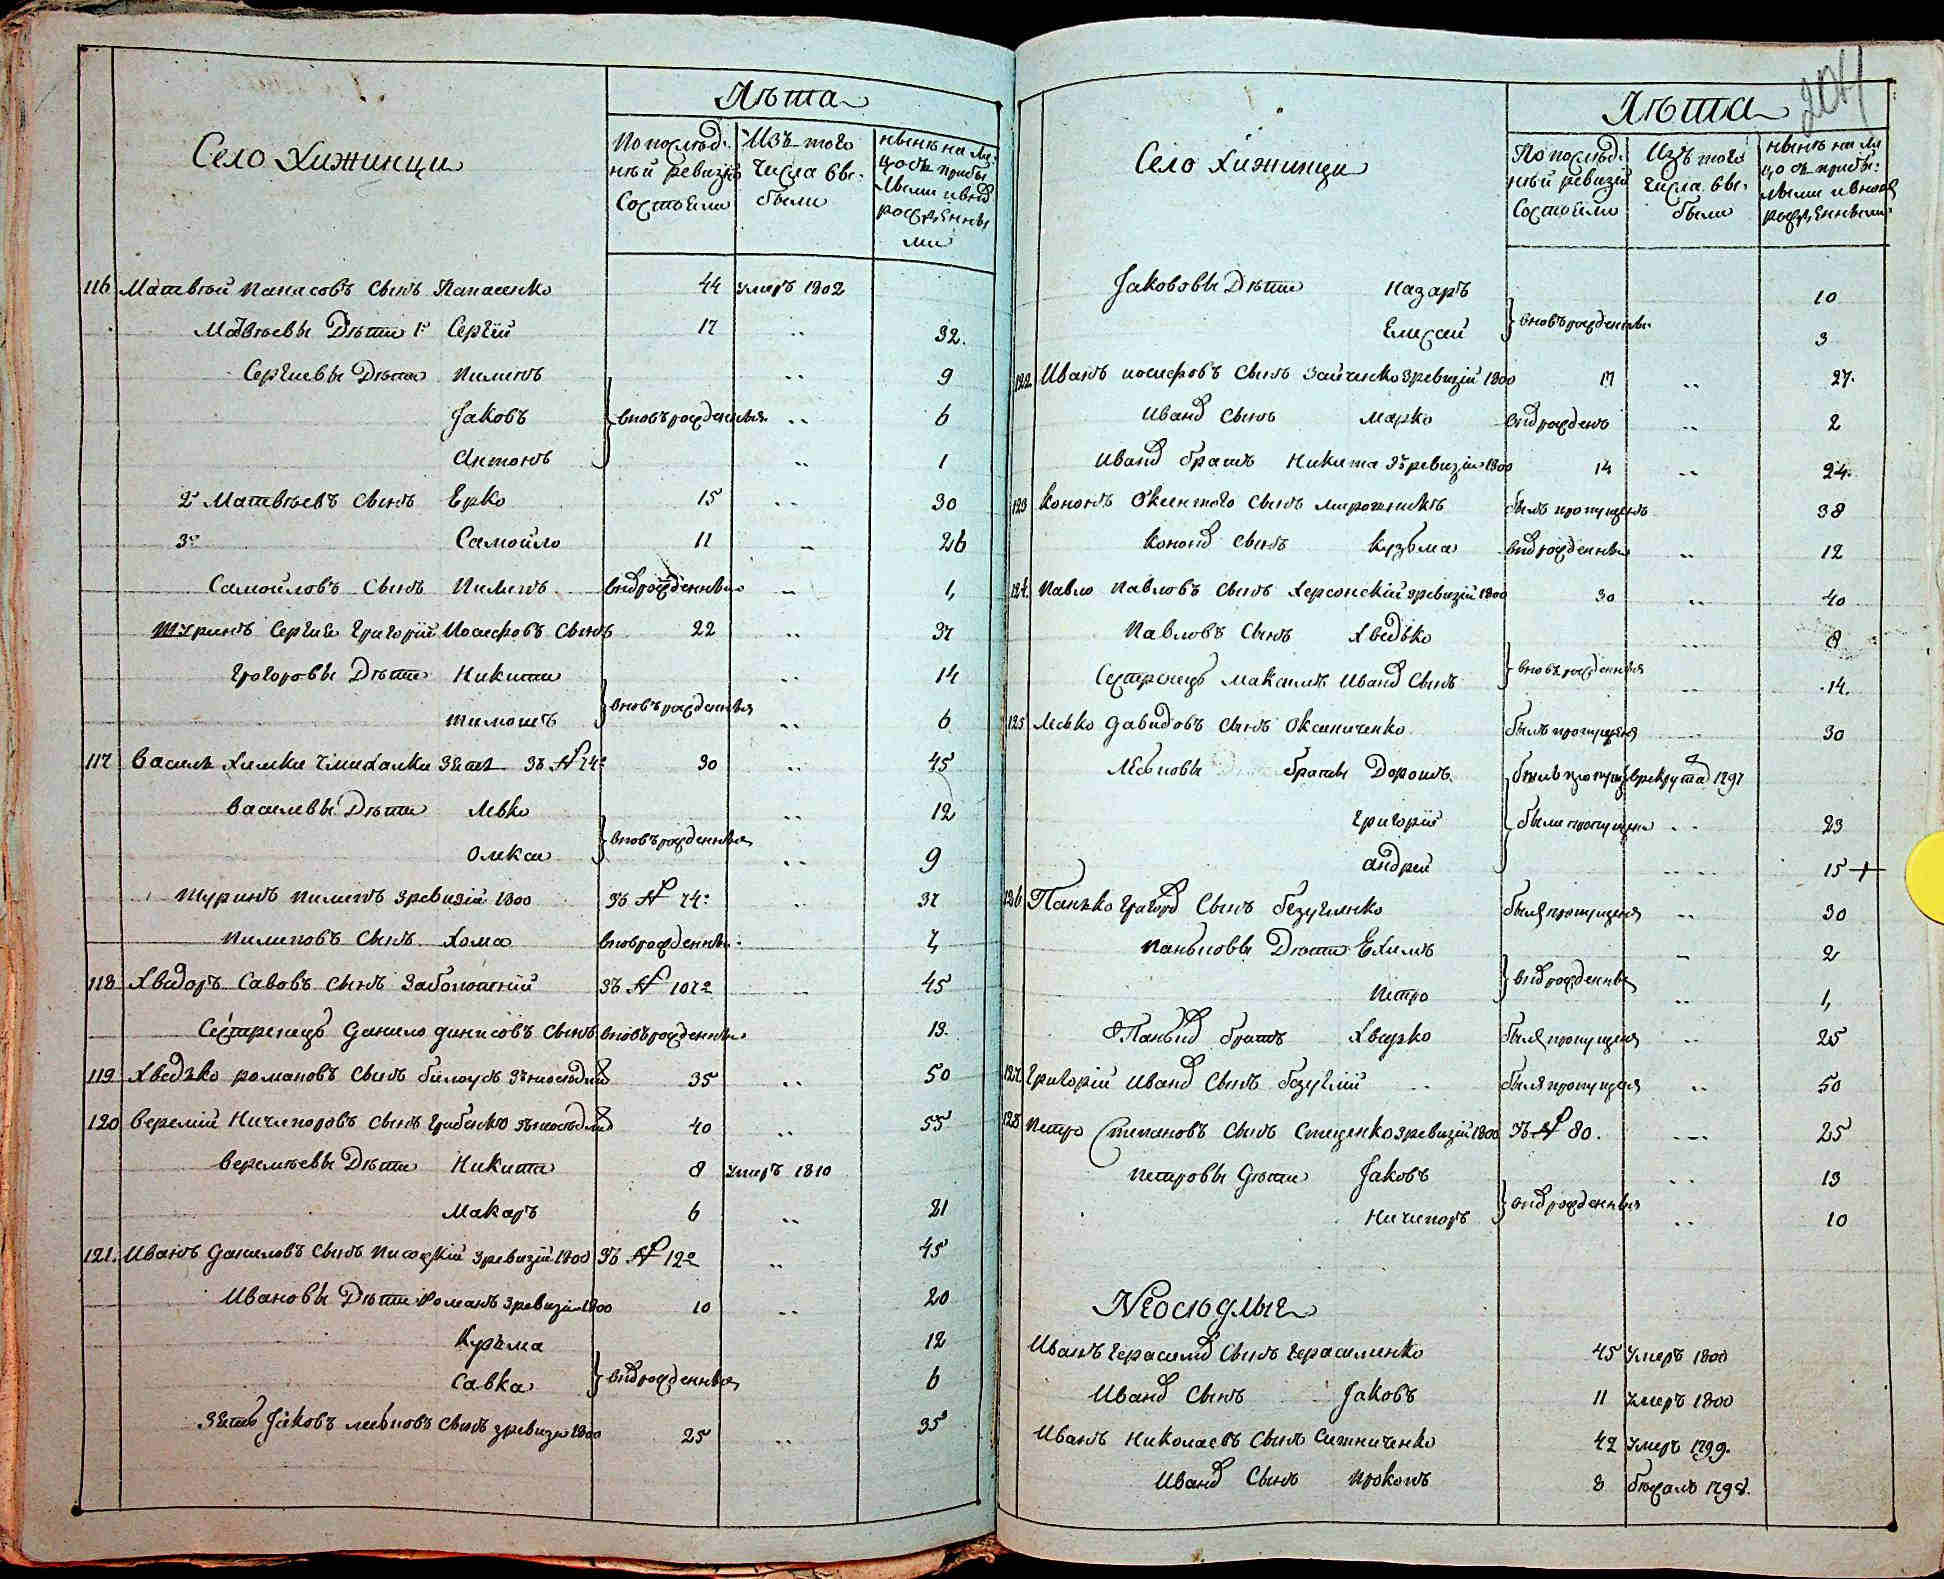 204
Лѣта
Село Хижинци
По послѣд-
нѣй ревизіи
Состояли
Изъ того
числа вы-
были
нынѣ на ли-
цо съ прибы
лыми и внов
рожденны
ми
116 Матвѣй Панасовъ сынъ Панасенко 44 умеръ 1802
Матвѣевы Дѣти 1й Сергій 17 „ 32.
Сергиевы Дѣти Пилипъ „ 9
Јаковъ вновърожденныя „ 6
Антонъ „ 1
2й Матвѣевъ сынъ Ерко 15 „ 30
3й Самойло 11 „ 26
Самойловъ сынъ Пилипъ вноврожденный „ 1
Шуринъ Сергіев Григорій Иосифовъ сынъ 22 „ 37
Григоровы Дѣти Никита „ 14
вновърожденныя
Тимошъ „ 6
117 Василь Химки зять зъ № 74 30 „ 45
Василевы Дѣти Левко „ 12
вновърожденныя
Олекса „ 9
Шуринъ Пилипъ зревизій 1800 зъ № 74 „ 37
Пилиповъ сынъ Хома вноврожденный 7
118 Хведоръ Савовъ сынъ Заболотній зъ № 107 „ 45
Сестренецъ Данило Динисовъ сынъ вновърожденный 13.
119 Хведько Романовъ сынъ Билоусъ 35 „ 50
120 Веремій Ничипоровъ сынъ Грибенко 40 „ 55
Веремѣевы Дѣти Никита 8 умеръ 1810
Макаръ 6 „ 21
121. Иванъ Даниловъ сынъ Писоцкій зревизій 1800 зъ № 12 „ 45
Ивановы Дѣти Романъ зревизій 1800 10 „ 20
Кузьма 12
вноврожденныя
Савка 6
Зять Јаковъ сынъ зревизій 1800 25 „ 35
Лѣта
Село Хижинци
По послѣд-
нѣй ревизіи
Состояли
Изъ того
числа вы-
были
нынѣ на ли
цо съ прибы-
лыми и вновь
рожденными
Јакововы Дѣти Назаръ 10
вновърожденныя
Елисай 3
122 Иванъ Иосифовъ сынъ Зайченко зревизій 1800 17 „ 27.
Иванов сынъ Марко вноврожденъ „ 2
Иванов братъ Никита зъ ревизіи 1800 14 „ 24.
123 Кононъ сынъ Мирошникъ былъ пропущенъ 38
Кононов сынъ Кузьма вноврожденный „ 12
124 Павло Павловъ сынъ Херсонскій зревизій 1800 30 „ 40
Павловъ сынъ Хведько 8
вновърожденныя
Сестренецъ Максимъ Иванов сынъ 14.
125 Лесько Давидовъ сынъ Оксаниченко былъ пропущенъ 30
Леськовы браты Дорошъ былъ пропущен врекрута 1797
Григорій были пропущены „ 23
Андрей 15 +
126 Панько Григоров сынъ Безугленко былъ пропущенъ „ 30
Паньковы Дѣти Ехимъ 2
вноврожденные
Петро „ 1
Паньков братъ Хвирко былъ пропущенъ „ 25
127 Григорій Иванов сынъ Безуглій былъ пропущенъ „ 50
128 Петро Степановъ сынъ Стеценко зревизій 1800 зъ № 80. 25
Петровы Дѣти Јаковъ 13
вноврожденныя
Ничипоръ 10
Неосѣдлые
Иванъ Герасимов сынъ Герасименко 45 умеръ 1800
Иванов сынъ Јаковъ 11 умеръ 1800
Иванъ Николаевъ сынъ Ситниченко 42 умеръ 1799.
Иванов сынъ Прокопъ 8 бѣжалъ 1798.